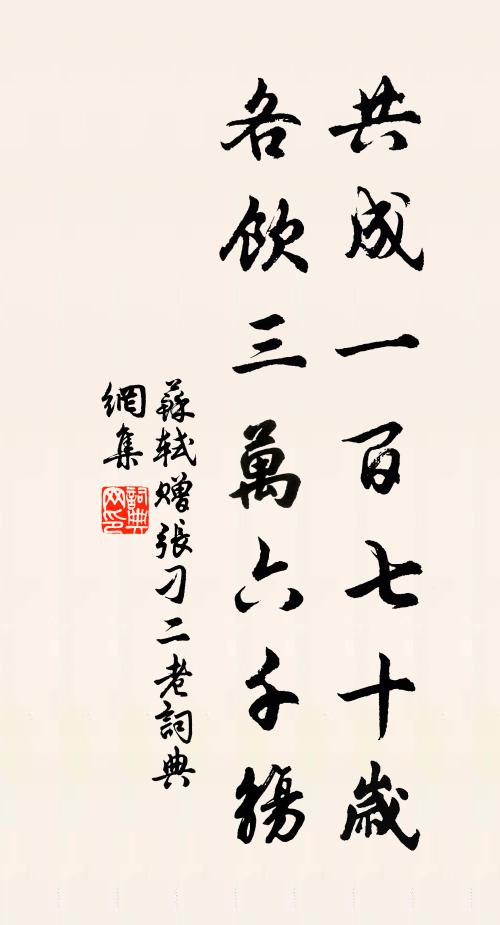 共成一百七十歲
各飲三萬六千觴
蘇軾贈張刁二老詞典
網集
詞典
网印